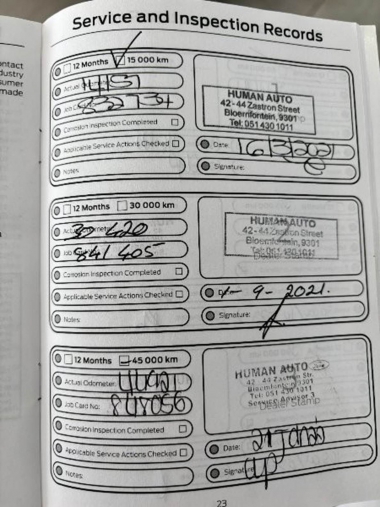 Service and Inspection Records
12 Months 15 000 km
Actual
Job C
Corrosion Inspection Completed
Applicable Service Actions Checked
Notes:
HUMAN AUTO
42 - 44 Zastron Street
Bloemfontein, 9301
Tel: 051 430 1011
Date: 16/3/2021
Signature:
12 Months 30 000 km
Job 841405
Corrosion Inspection Completed
Applicable Service Actions Checked
Notes:
HUMAN AUTO
42 - 44 Zastron Street
Bloemfontein, 9301
Tel: 051 430 1011
Dealer Stamp
9 - 2021.
Signature:
12 Months 45 000 km
Actual Odometer: 44921
Job Card No: 848056
Corrosion Inspection Completed
Applicable Service Actions Checked
Notes:
HUMAN AUTO
42 - 44 Zastron Str
Bloemfontein 9301
Tel: 051 430 1011
Service Advisor 3
Dealer Stamp
Date:
Signature:
23